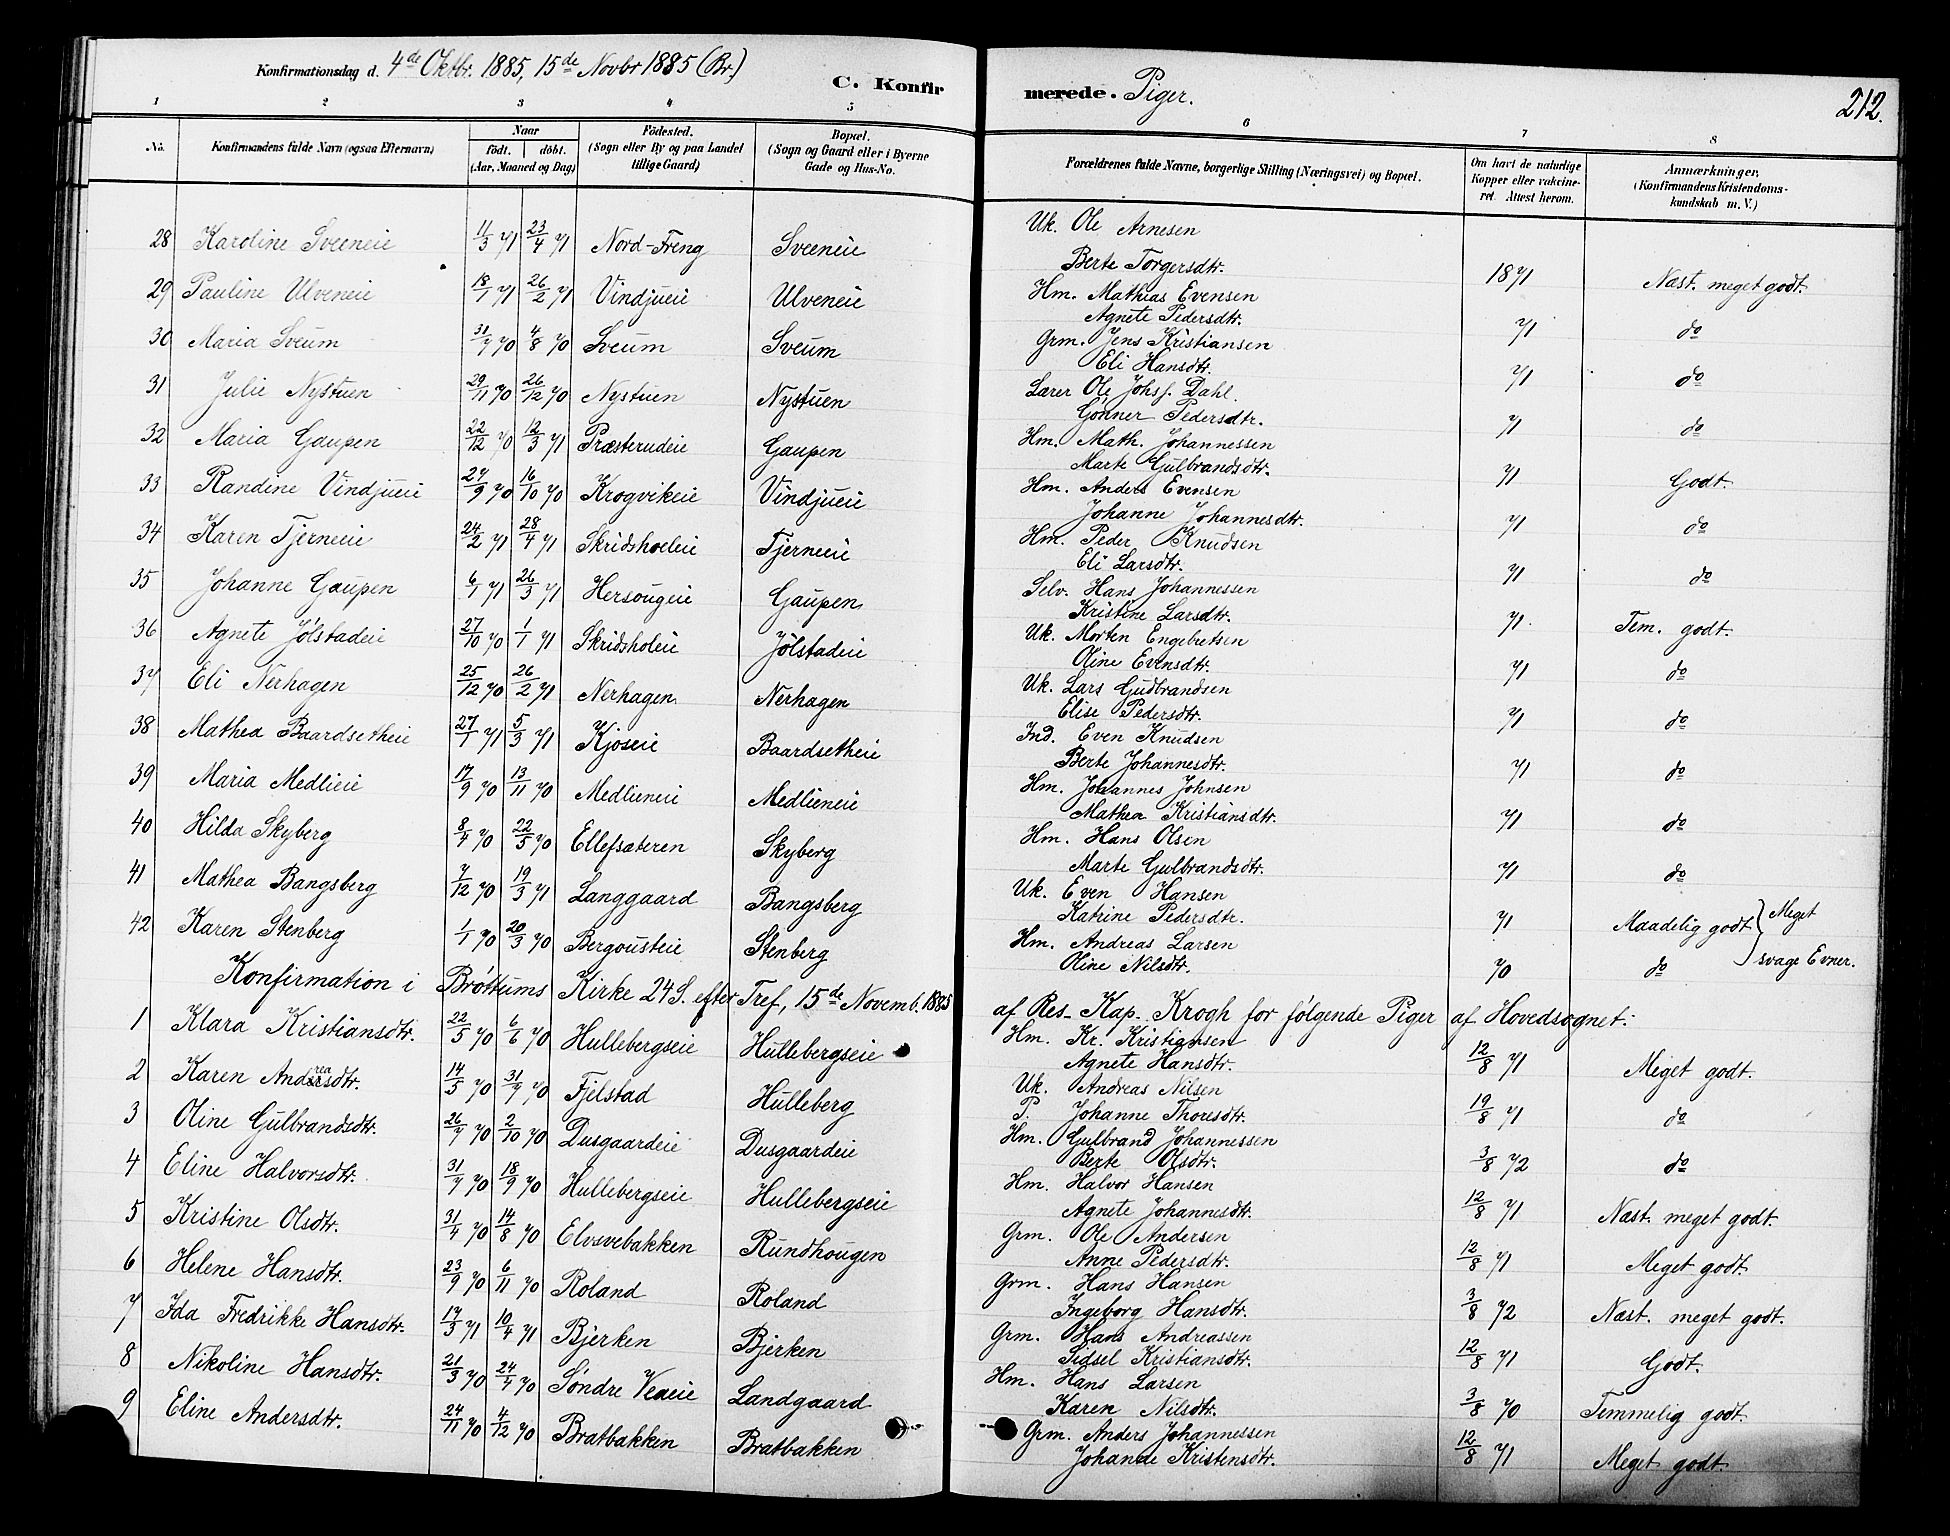 Konfirmationsdag d. 4de Oktbr. 1885, 15de Novbr 1885 (Br.)
C. Konfirmerede. Piger. 212.
1 2 3 4 5 6 7 8
No. Konfirmandens fulde Navn (ogsaa Efternavn) Naar födt. döbt. (Aar, Maaned og Dag) Födested. (Sogn eller By og paa Landet tillige Gaard) Bopæl. (Sogn og Gaard eller i Byerne Gade og Hus-No. Forældrenes fulde Navne, borgerlige Stilling (Næringsvei) og Bopæl. Om havt de naturlige Kopper eller vakcineret. Attest herom. Anmærkninger, (Konfirmandens Kristendomskundskab m. V.)
28 Karoline Sveeneie 11/3 71 23/4 71 Nord-Freng Sveeneie Uk. Ole Arnesen
Berte Torgersdtr. 1871 Næst. meget godt.
29 Pauline Ulveneie 18/1 71 26/2 71 Vindjueie Ulveneie Hm. Mathias Evensen
Agnete Pedersdtr. 71 do
30 Maria Sveum 31/7 70 4/8 70 Sveum Sveum Grm. Jens Kristiansen
Eli Hansdtr. 71 do
31 Julie Nystuen 29/11 70 26/12 70 Nystuen Nystuen Lærer Ole Johsf. Dahl.
Gønner Pedersdtr. 71 do
32 Maria Gaupen 22/12 70 12/3 71 Præsterudeie Gaupen Hm. Math. Johannessen
Marte Gulbrandsdtr. 71 Godt.
33 Randine Vindjueie 27/9 70 16/10 70 Krogvikeie Vindjueie Hm. Anders Evensen
Johanne Johannesdtr. 71 do
34 Karen Tjerneie 24/2 71 28/4 71 Skridsholeie Tjerneie Hm. Peder Knudsen
Eli Larsdtr. 71 do
35 Johanne Gaupen 6/1 71 26/3 71 Hersougeie Gaupen Selv. Hans Johannessen
Kristine Larsdtr. 71. Tem. godt.
36 Agnete Jølstadeie 27/10 70 1/1 71 Skridsholeie Jølstadeie Uk. Morten Engebretsen
Oline Evensdtr. 71 do
37 Eli Nerhagen 25/12 70 26/2 71 Nerhagen Nerhagen Uk. Lars Gudbrandsen
Elise Pedersdtr. 71 do
38 Mathea Baardsetheie 27/1 71 5/3 71 Kjoseie Baardsetheie Ind. Even Knudsen
Berte Johannesdtr. 71 do
39 Maria Medlieie 17/9 70 13/11 70 Medlieneie Medlieneie Hm. Johannes Johnsen
Mathea Kristiansdtr. 71 do
40 Hilda Skyberg 8/4 70 22/5 70 Ellefsæteren Skyberg Hm. Hans Olsen
Marte Gulbrandsdtr. 71 do
41 Mathea Bangsberg 7/12 70 19/3 71 Langgaard Bangsberg Uk. Even Hansen
Katrine Pedersdtr. 71 Maadelig godt } Meget
42 Karen Stenberg 1/1 70 20/3 70 Bergousteie Stenberg Hm. Andreas Larsen
Oline Nilsdtr. 70 do svage Evner.
Konfirmation i Brøttums Kirke 24 S. efter Tref, 15de Novemb. 1885 af Res. Kap. Krogh for følgende Piger af Hovedsognet:
1 Klara Kristiansdtr. 22/5 70 6/6 70 Hullebergseie Hullebergseie Hm. Kr. Kristiansen
Agnete Hansdtr. 12/8 71 Meget godt.
2 Karen Andreasdtr. 14/5 70 31/7 70 Fjelstad Hulleberg Uk. Andreas Nilsen
P. Johanne Thoresdtr. 19/8 71 do
3 Oline Gulbrandsdtr. 26/7 70 2/10 70 Dusgaardeie Dusgaardeie Hm. Gulbrand Johannessen
Berte Olsdtr. 3/8 72 do
4 Eline Halvorsdtr. 31/7 70 18/9 70 Hullebergseie Hullebergseie Hm. Halvor Hansen
Agnete Johannesdtr. 12/8 71 Næst. meget godt.
5 Kristine Olsdtr. 31/4 70 14/8 70 Elvsvebakken Rundhougen Grm. Ole Andersen
Anne Pedersdtr. 12/8 71 Meget godt.
6 Helene Hansdtr. 23/9 70 6/11 70 Roland Roland Grm. Hans Hansen
Ingeborg Hansdtr. 3/8 72 Næst. meget godt.
7 Ida Fredrikke Hansdtr. 17/3 71 10/4 71 Bjerken Bjerken Grm. Hans Andreassen
Sidsel Kristiansdtr. 12/8 71 Godt.
8 Nikoline Hansdtr. 21/3 70 24/4 70 Søndre Veaeie Landgaard Hm. Hans Larsen
Karen Nilsdtr. 3/8 70 Temmelig godt
9 Eline Andersdtr. 24/11 70 4/12 70 Bratbakken Bratbakken Grm. Anders Johannessen
Johanne Kristensdtr. 12/8 71 Meget godt.